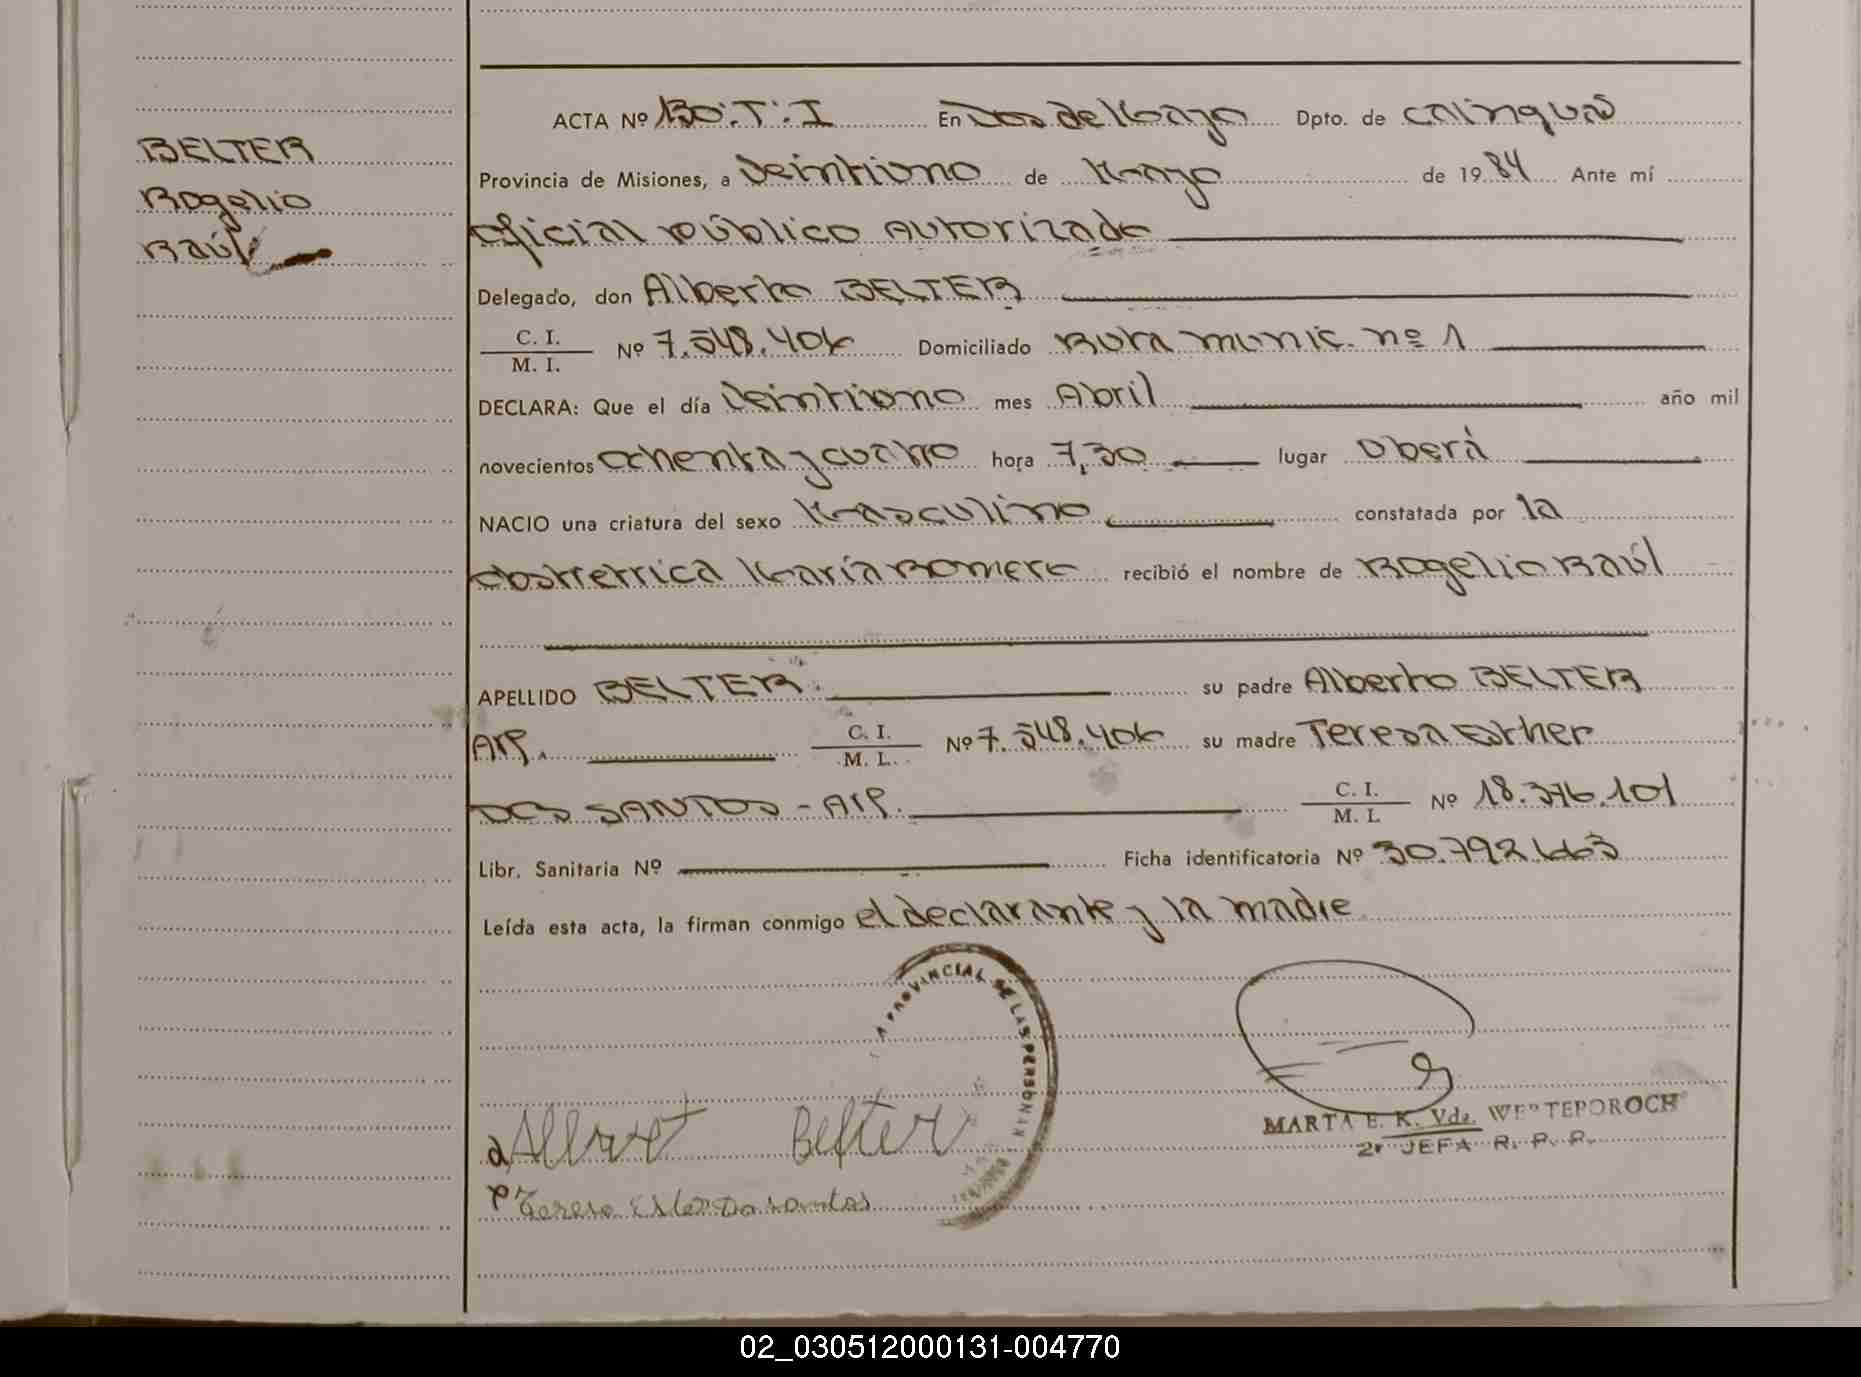 BELTER
Rogelio
Raúl
ACTA Nº 130.T.I En Dos de Mayo Dpto. de Cainguás
Provincia de Misiones, a veintiuno de Mayo de 1984 Ante mí
Oficial Público Autorizado
Delegado, don Alberto BELTER
C. I.
M. I. Nº 7.548.406 Domiciliado Ruta munic. nº 1
DECLARA: Que el día veintiuno mes Abril año mil
novecientos ochenta y cuatro hora 7,30 lugar Oberá
NACIO una criatura del sexo Masculino constatada por la
obstretrica María Romero recibió el nombre de Rogelio Raúl
APELLIDO BELTER su padre Alberto BELTER
Arg. C. I.
M. I. Nº 7.548.406 su madre Teresa Esther
DOS SANTOS - Arg. C. I.
M. I. Nº 18.376.101
Libr. Sanitaria Nº Ficha identificatoria Nº 30.792.663
Leída esta acta, la firman conmigo el declarante y la madre
PROVINCIAL DE LAS PERSONAS
Albert Belter
MARTA E. K. Vda.
2º JEFA R. P. P.
02_030512000131-004770